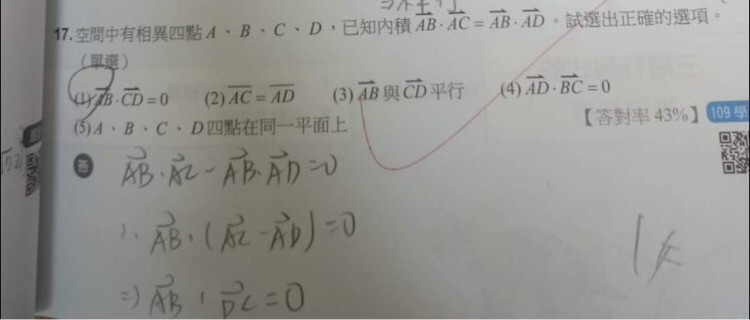 17. 空間中有相異四點 A、B、C、D，已知內積 $\overrightarrow{AB}\cdot\overrightarrow{AC}=\overrightarrow{AB}\cdot\overrightarrow{AD}$。試選出正確的選項。
（單選）
(1) $\overrightarrow{AB}\cdot\overrightarrow{CD}=0$ (2) $\overline{AC}=\overline{AD}$ (3) $\overrightarrow{AB}$ 與 $\overrightarrow{CD}$ 平行 (4) $\overrightarrow{AD}\cdot\overrightarrow{BC}=0$
(5) A、B、C、D 四點在同一平面上 【答對率 43%】 109 學
答 $\overrightarrow{AB}\cdot\overrightarrow{AC}-\overrightarrow{AB}\cdot\overrightarrow{AD}=0$
$\overrightarrow{AB}\cdot(\overrightarrow{AC}-\overrightarrow{AD})=0$
$\Rightarrow\overrightarrow{AB}\cdot\overrightarrow{DC}=0$